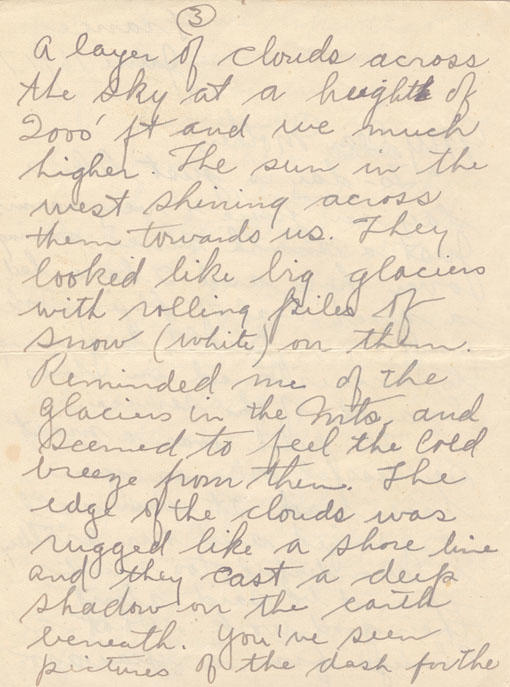 3
A layer of clouds across
the sky at a heighth of
2000' ft and we much
higher. The sun in the
west shining across
them towards us. They
looked like big glaciers
with rolling piles of
snow (white) on them.
Reminded me of the
glaciers in the Mts, and
seemed to feel the cold
breeze from them. The
edge of the clouds was
rugged like a shore line
and they cast a deep
shadow on the earth
beneath. You've seen
pictures of the dash for the